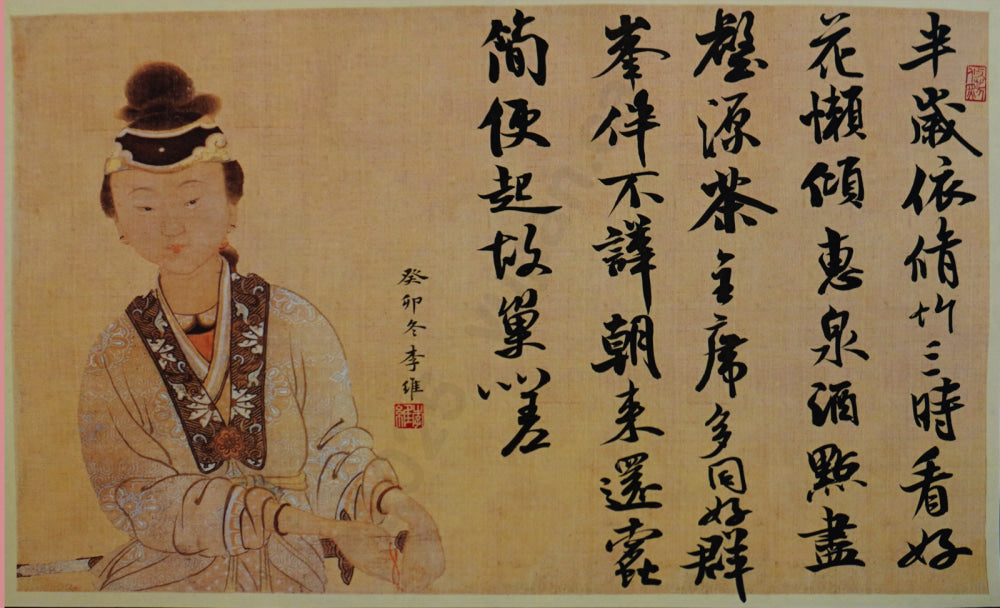 半歲依脩竹三時看好
花懶傾惠泉酒點盡
壑源茶主席多同好群
峯伴不譁朝来還蠹
簡便起故巢嗟
癸卯冬李維